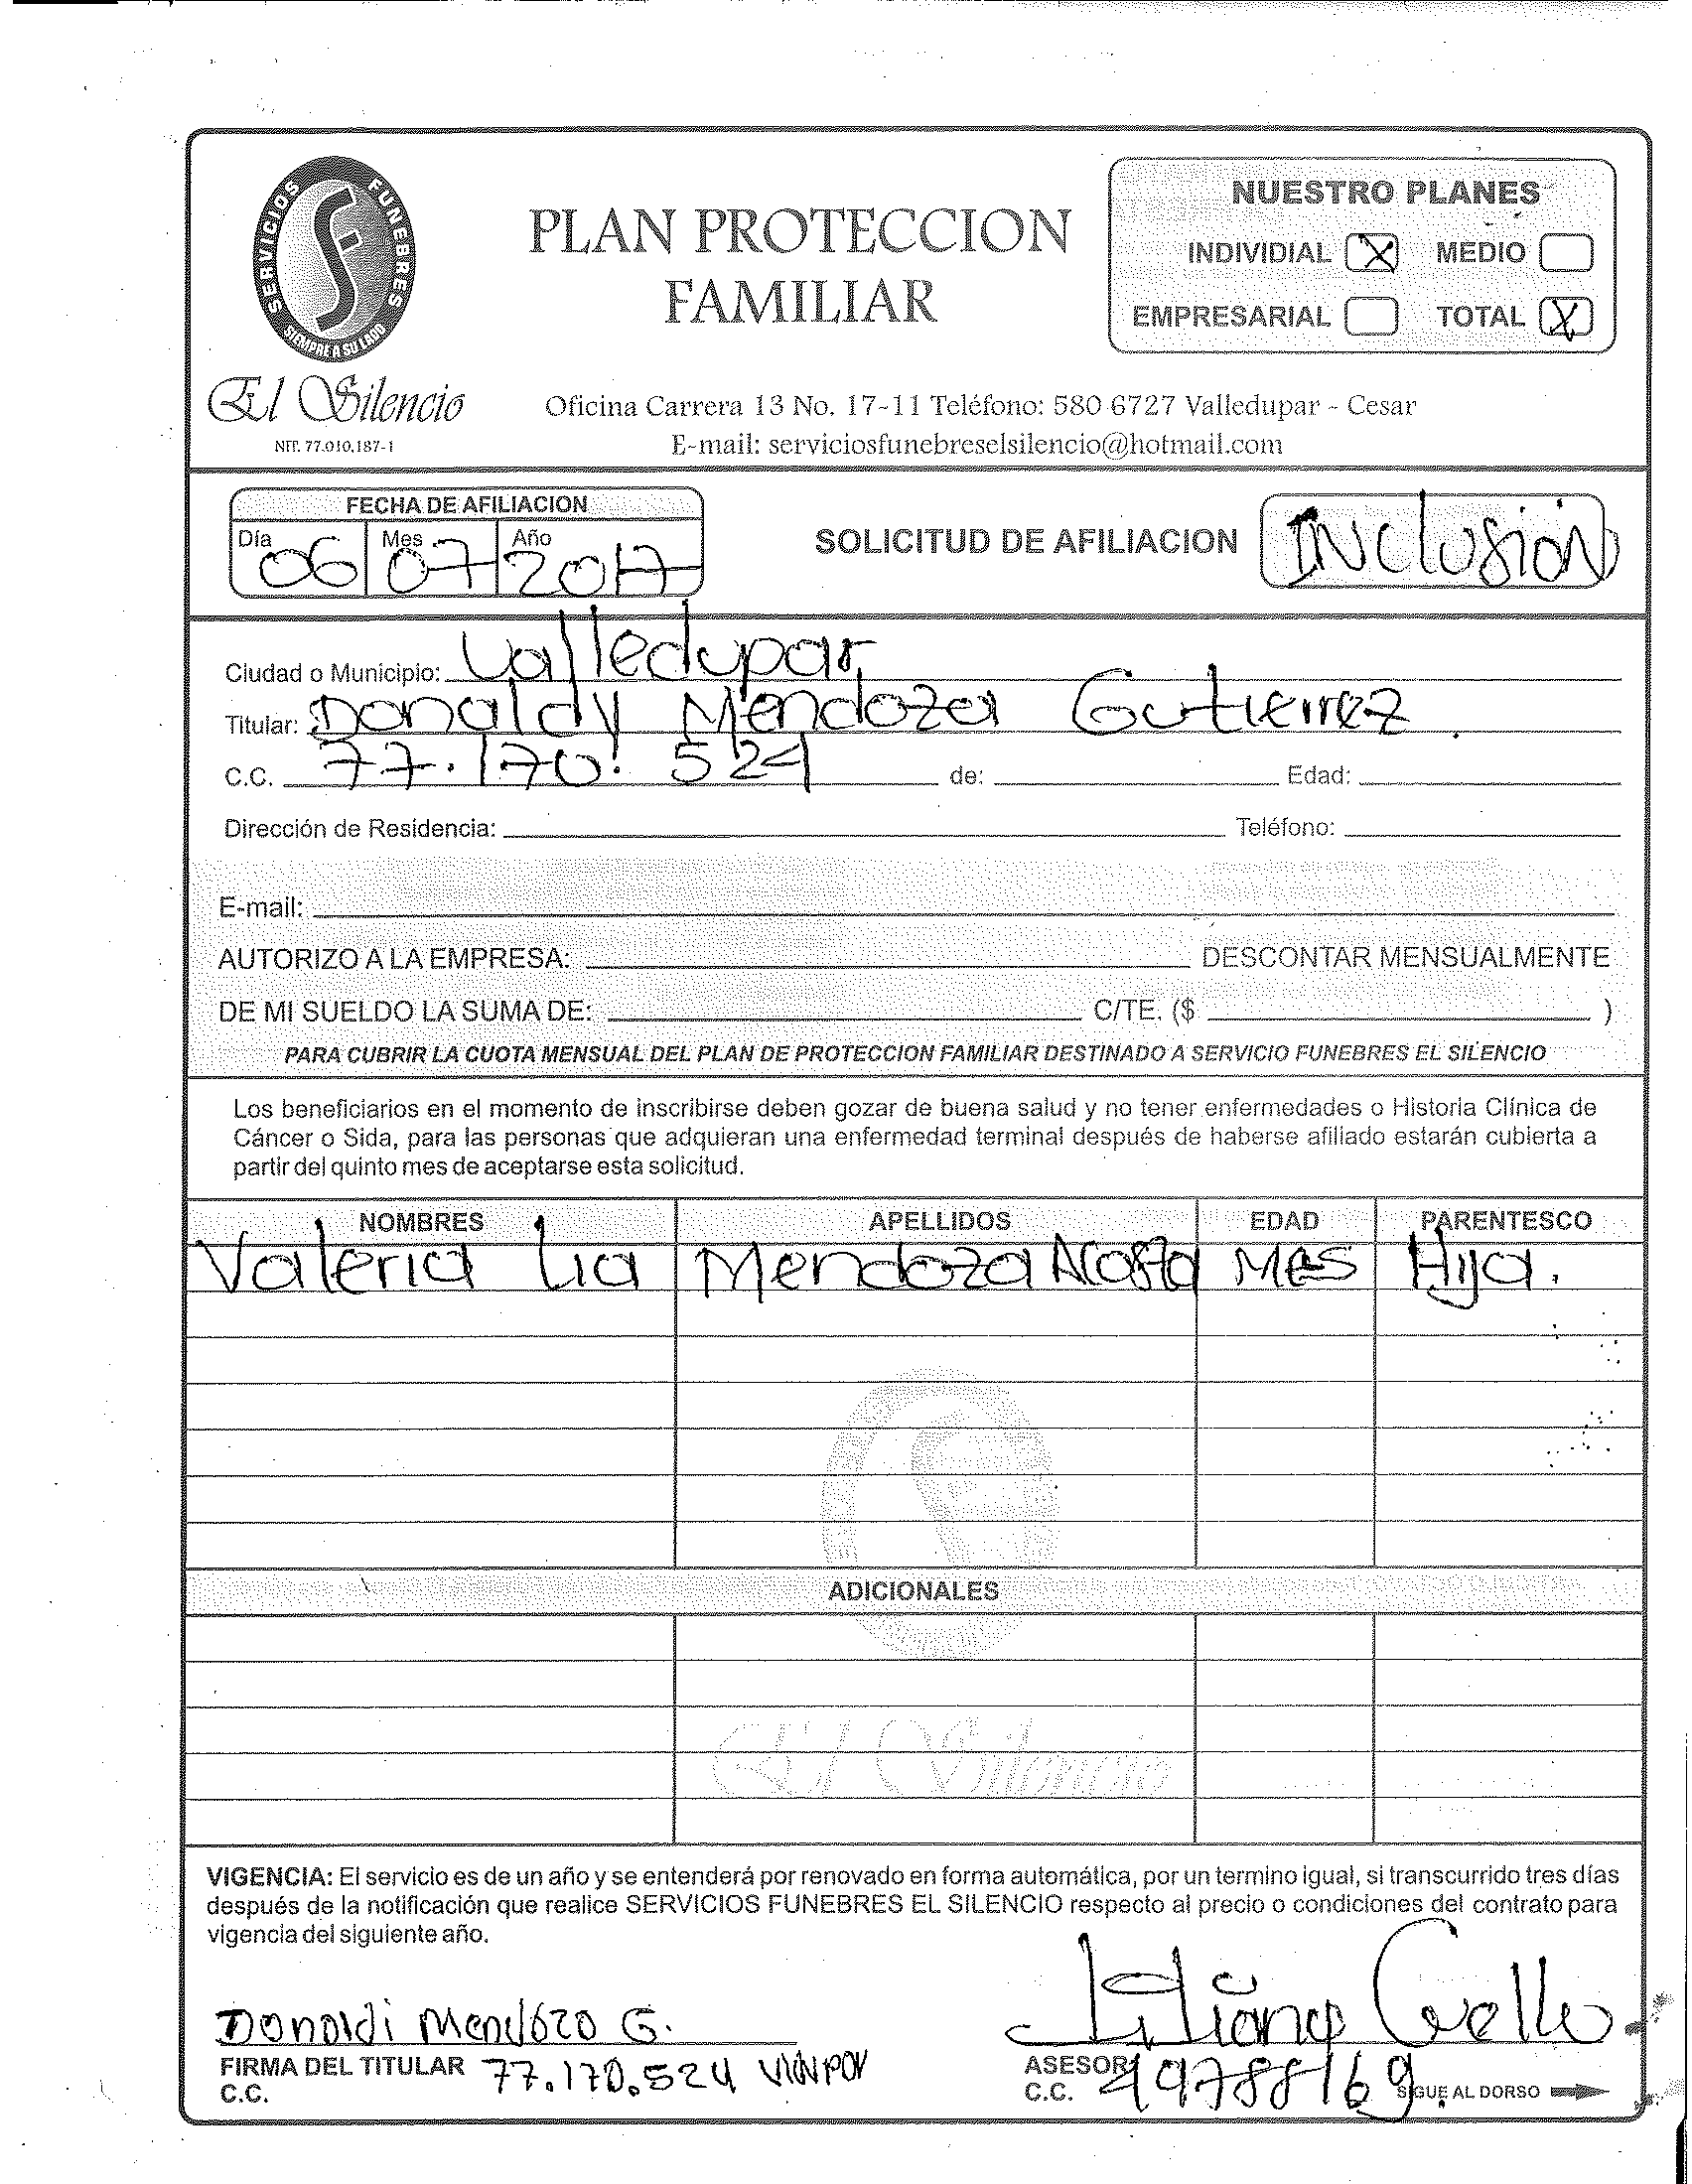 SERVICIOS FUNEBRES
SIEMPRE A SU LADO
El Silencio
NIT. 77.010.187-1
PLAN PROTECCION
FAMILIAR
NUESTRO PLANES
INDIVIDIAL X MEDIO
EMPRESARIAL TOTAL X
Oficina Carrera 13 No. 17-11 Teléfono: 580 6727 Valledupar - Cesar
E-mail: serviciosfunebreselsilencio@hotmail.com
FECHA DE AFILIACION
Día 06 Mes 07 Año 2017
SOLICITUD DE AFILIACION INclusióN
Ciudad o Municipio: Valledupar
Titular: Donaldy Mendoza Gutierrez.
C.C. 77.170.524 de: Edad:
Dirección de Residencia: Teléfono:
E-mail:
AUTORIZO A LA EMPRESA: DESCONTAR MENSUALMENTE
DE MI SUELDO LA SUMA DE: C/TE. ($ )
PARA CUBRIR LA CUOTA MENSUAL DEL PLAN DE PROTECCION FAMILIAR DESTINADO A SERVICIO FUNEBRES EL SILENCIO
Los beneficiarios en el momento de inscribirse deben gozar de buena salud y no tener enfermedades o Historia Clínica de
Cáncer o Sida, para las personas que adquieran una enfermedad terminal después de haberse afiliado estarán cubierta a
partir del quinto mes de aceptarse esta solicitud.
NOMBRES APELLIDOS EDAD PARENTESCO
Valeria Lia Mendoza Acosta Mes Hija.
ADICIONALES
El Silencio
VIGENCIA: El servicio es de un año y se entenderá por renovado en forma automática, por un termino igual, si transcurrido tres días
después de la notificación que realice SERVICIOS FUNEBRES EL SILENCIO respecto al precio o condiciones del contrato para
vigencia del siguiente año.
Donaldi Mendozo G.
FIRMA DEL TITULAR
C.C. 77.170.524
ASESOR
C.C. 49788169
SIGUE AL DORSO